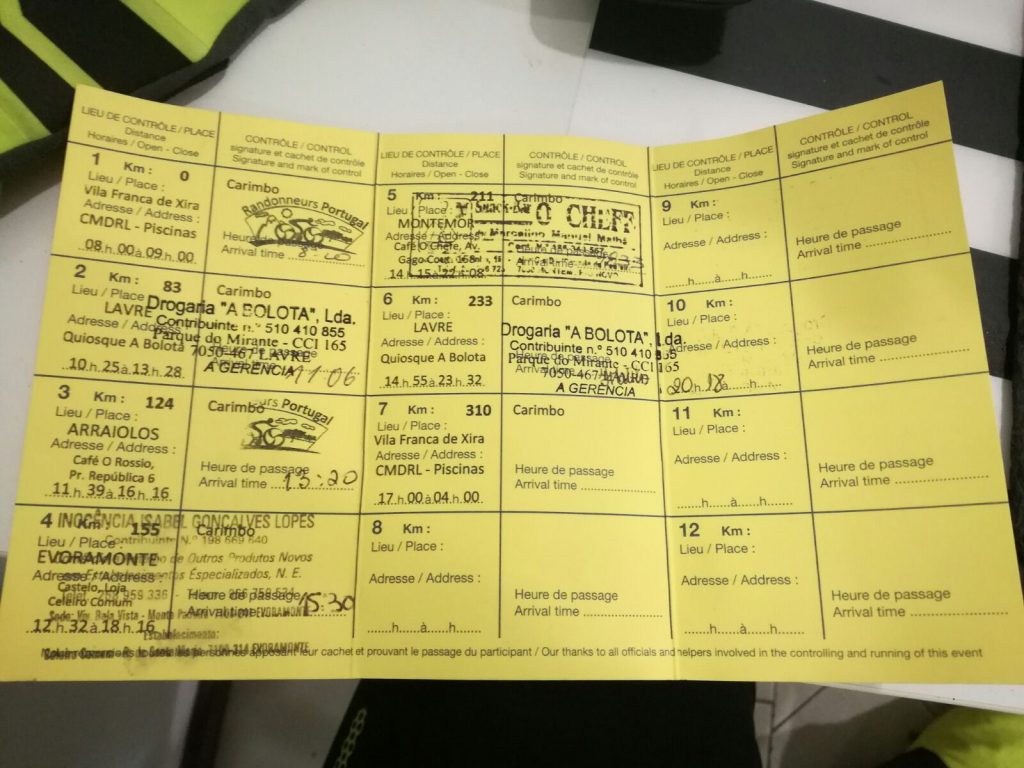 LIEU DE CONTRÔLE / PLACE
Distance
Horaires / Open - Close
CONTRÔLE / CONTROL
signature et cachet de contrôle
Signature and mark of control
1 Km : 0
Lieu / Place :
Vila Franca de Xira
Adresse / Address :
CMDRL - Piscinas
08 h 00 à 09 h 00
Carimbo
Randonneurs Portugal
Heure
Arrival time
2 Km : 83
Lieu / Place
LAVRE
Adresse / Address
Quiosque A Bolota
10 h 25 à 13 h 28
Carimbo
Drogaria "A BOLOTA", Lda.
Contribuinte n.º 510 410 855
Parque do Mirante - CCI 165
7050-467 LAVRE
A GERÊNCIA
11:06
3 Km : 124
Lieu / Place :
ARRAIOLOS
Adresse / Address :
Café O Rossio,
Pr. República 6
11 h 39 à 16 h 16
Carimbo
eurs Portugal
Heure de passage
Arrival time 13:20
4 Km : 155
Lieu / Place :
EVORAMONTE
Adresse / Address :
Castelo, Loja
Celeiro Comum
12 h 32 à 18 h 16
Carimbo
INOCÊNCIA ISABEL GONÇALVES LOPES
Contribuinte N.º 198 669 640
de Outros Produtos Novos
Estabelecimentos Especializados, N. E.
Heure de passage
Arrival time 15:30
Estabelecimento:
EVORAMONTE
LIEU DE CONTRÔLE / PLACE
Distance
Horaires / Open - Close
CONTRÔLE / CONTROL
signature et cachet de contrôle
Signature and mark of control
5 Km : 211
Lieu / Place :
MONTEMOR
Adresse / Address :
Café O Chefe, Av.
Gago Cout. 158
14 h 15 à 22 h 08
Carimbo
Snack-Bar O CHEFF
de Marcelino Manuel
6 Km : 233
Lieu / Place :
LAVRE
Adresse / Address :
Quiosque A Bolota
14 h 55 à 23 h 32
Carimbo
Drogaria "A BOLOTA", Lda.
Contribuinte n.º 510 410 855
Parque do Mirante - CCI 165
7050-467 LAVRE
A GERÊNCIA
20 h 18
7 Km : 310
Lieu / Place :
Vila Franca de Xira
Adresse / Address :
CMDRL - Piscinas
17 h 00 à 04 h 00
Carimbo
Heure de passage
Arrival time
8 Km :
Lieu / Place :
Adresse / Address :
h à h
Heure de passage
Arrival time
LIEU DE CONTRÔLE / PLACE
Distance
Horaires / Open - Close
CONTRÔLE / CONTROL
signature et cachet de contrôle
Signature and mark of control
9 Km :
Lieu / Place :
Adresse / Address :
h à h
Heure de passage
Arrival time
10 Km :
Lieu / Place :
Adresse / Address :
Heure de passage
Arrival time
11 Km :
Lieu / Place :
Adresse / Address :
h à h
Heure de passage
Arrival time
12 Km :
Lieu / Place :
Adresse / Address :
h à h
Heure de passage
Arrival time
personnes apposant leur cachet et prouvant le passage du participant / Our thanks to all officials and helpers involved in the controlling and running of this event